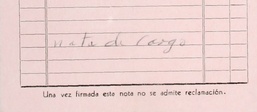 nota de cargo
Una vez firmada esta nota no se admite reclamación.